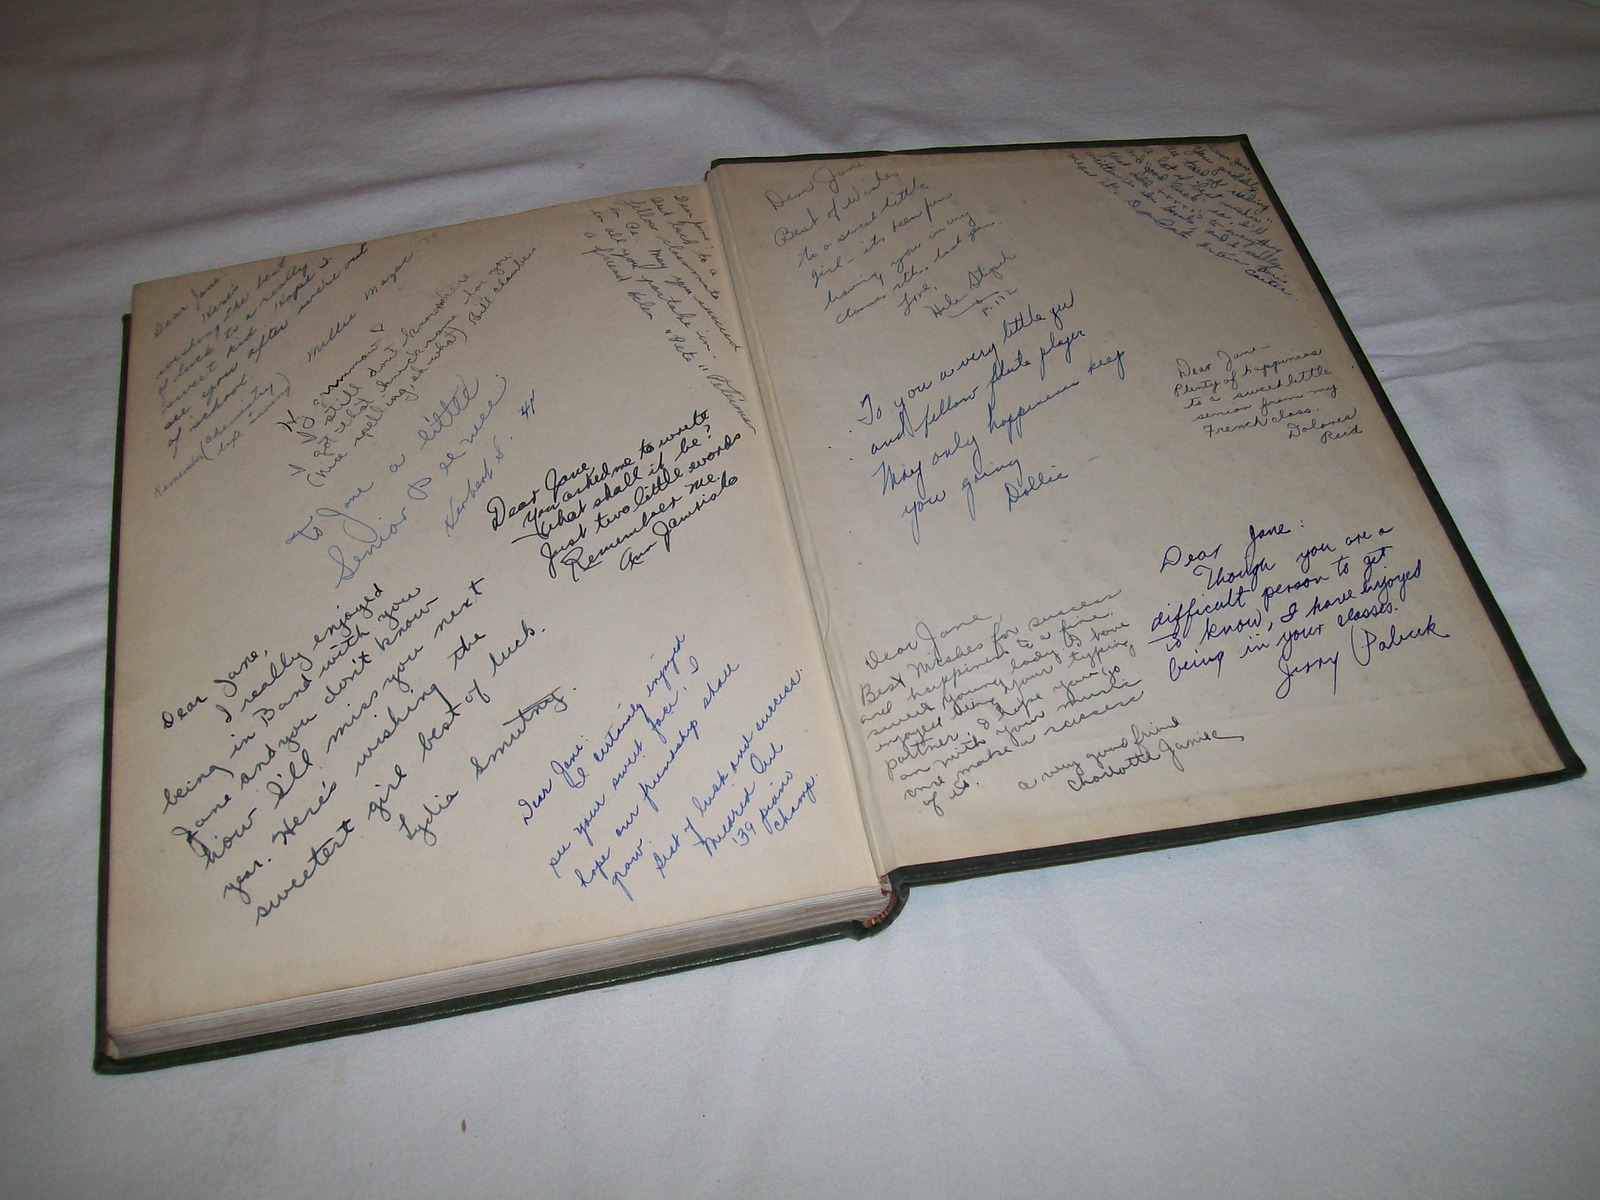 Dear Jane:
Here's
wishing the best
of luck to a really
sweet kid. Hope I
see you after we're out
of school.
Millie Mazac '39
Remember (Chemistry)
(life saving)
I still don't know where
I got that knickname for you.
(nice spelling, eh what) Bill
To Jane a little
Senior
Herbert S.
Dear Jane:
Best luck to a
fellow classmate
in
May you succeed
in all you partake in.
a friend Helen "Pete"
Dear Jane
You asked me to write
What shall it be?
Just two little words
Remember me.
Ann
Dear Jane,
I really enjoyed
being in Band with you
Jane and you don't know
how I'll miss you next
year. Here's wishing the
sweetest girl best of luck.
Lydia Smutny.
Dear Jane:
I certainly enjoyed
see your sweet face. I
hope our friendship shall
grow.
Best of luck and success.
Mildred
'39 piano
champ.
Dear Jane
Best of Wishes
to a sweet little
girl - its been fun
having you in my
class this last year.
Love,
Helen
Dear Jane,
You probably
a lot of
and good luck
To you a very little girl
and fellow flute player
May only happiness keep
you going
Dollie
Dear Jane-
Plenty of happiness
to a sweet little
senior from my
French class.
Dolores
Reid
Dear Jane:
Though you are a
difficult person to get
to know, I have enjoyed
being in your classes.
Jerry Palucek
Dear Jane
Best Wishes for success
and happiness to a fine
sweet young lady. I have
enjoyed being your typing
partner. I hope you go
on with your music
and make a success
of it.
a very good friend
Charlotte